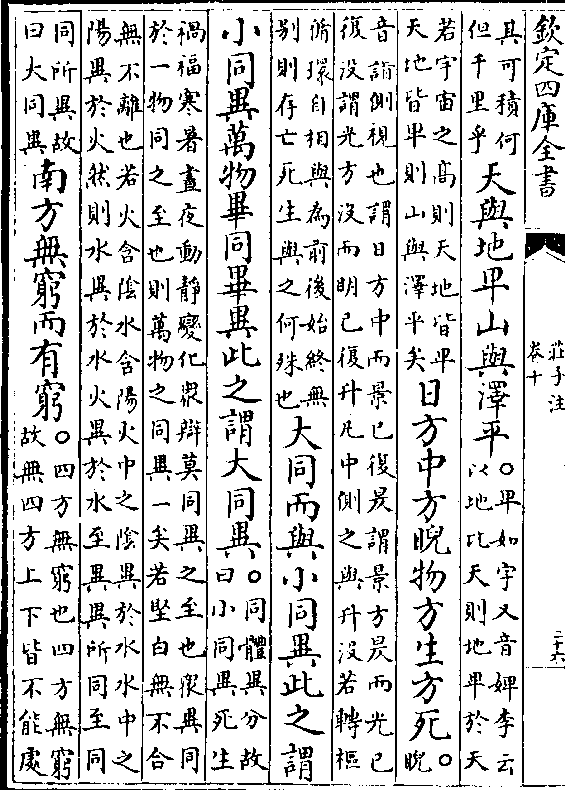 欽定四庫全書
莊子注
卷十
二十六
其可積何
但千里乎
天與地卑山與澤平
○卑如字又音婢李云
以地比天則地卑於天
若宇宙之高則天地皆卑
天地皆卑則山與澤平矣
日方中方睨物方生方死
○睨
音詣側視也謂日方中而景已復昃謂景方昃而光已
復沒謂光方沒而明已復升凡中側之與升沒若轉樞
循環自相與為前後始終無
别則存亡死生與之何殊也
大同而與小同異此之謂
小同異萬物畢同畢異此之謂大同異
○同體異分故
曰小同異死生
禍福寒暑晝夜動靜變化衆辯莫同異之至也衆異同
於一物同之至也則萬物之同異一矣若堅白無不合
無不離也若火含陰水含陽火中之陰異於水水中之
陽異於火然則水異於水火異於水至異異所同至同
同所異故
曰大同異
南方無窮而有窮
○四方無窮也四方無窮
故無四方上下皆不能處